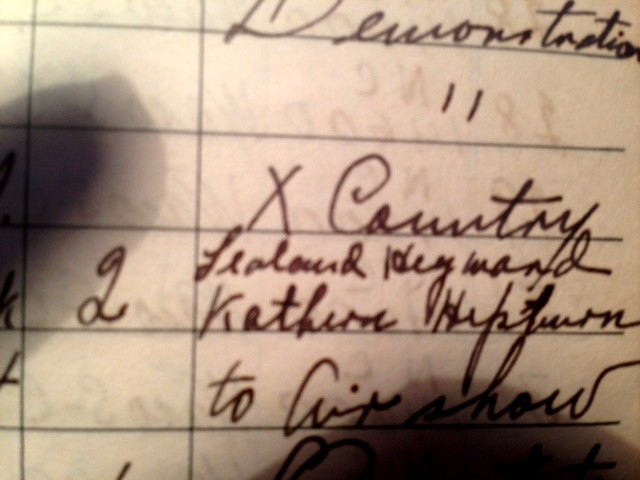 Demonstration
"
X Country
Leland Heyward
2 Kathern Hepburn
to Air show